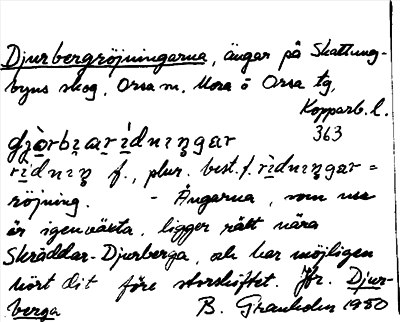 Djurbergröjningarna, ängar på Skattung-
byns skog, Orsa sn, Mora o Orsa tg,
Kopparb. l.
363
gjò̱rbɩ̯arìdnɩŋgar
rìdnɩŋ f., plur. best. f. rìdnɩŋgar =
röjning. - Ängarna, som nu
är igenväxta, ligger rätt nära
Skräddar-Djurberga, och har möjligen
hört dit före storskiftet. Jfr. Djur-
berga B. Granholm 1950